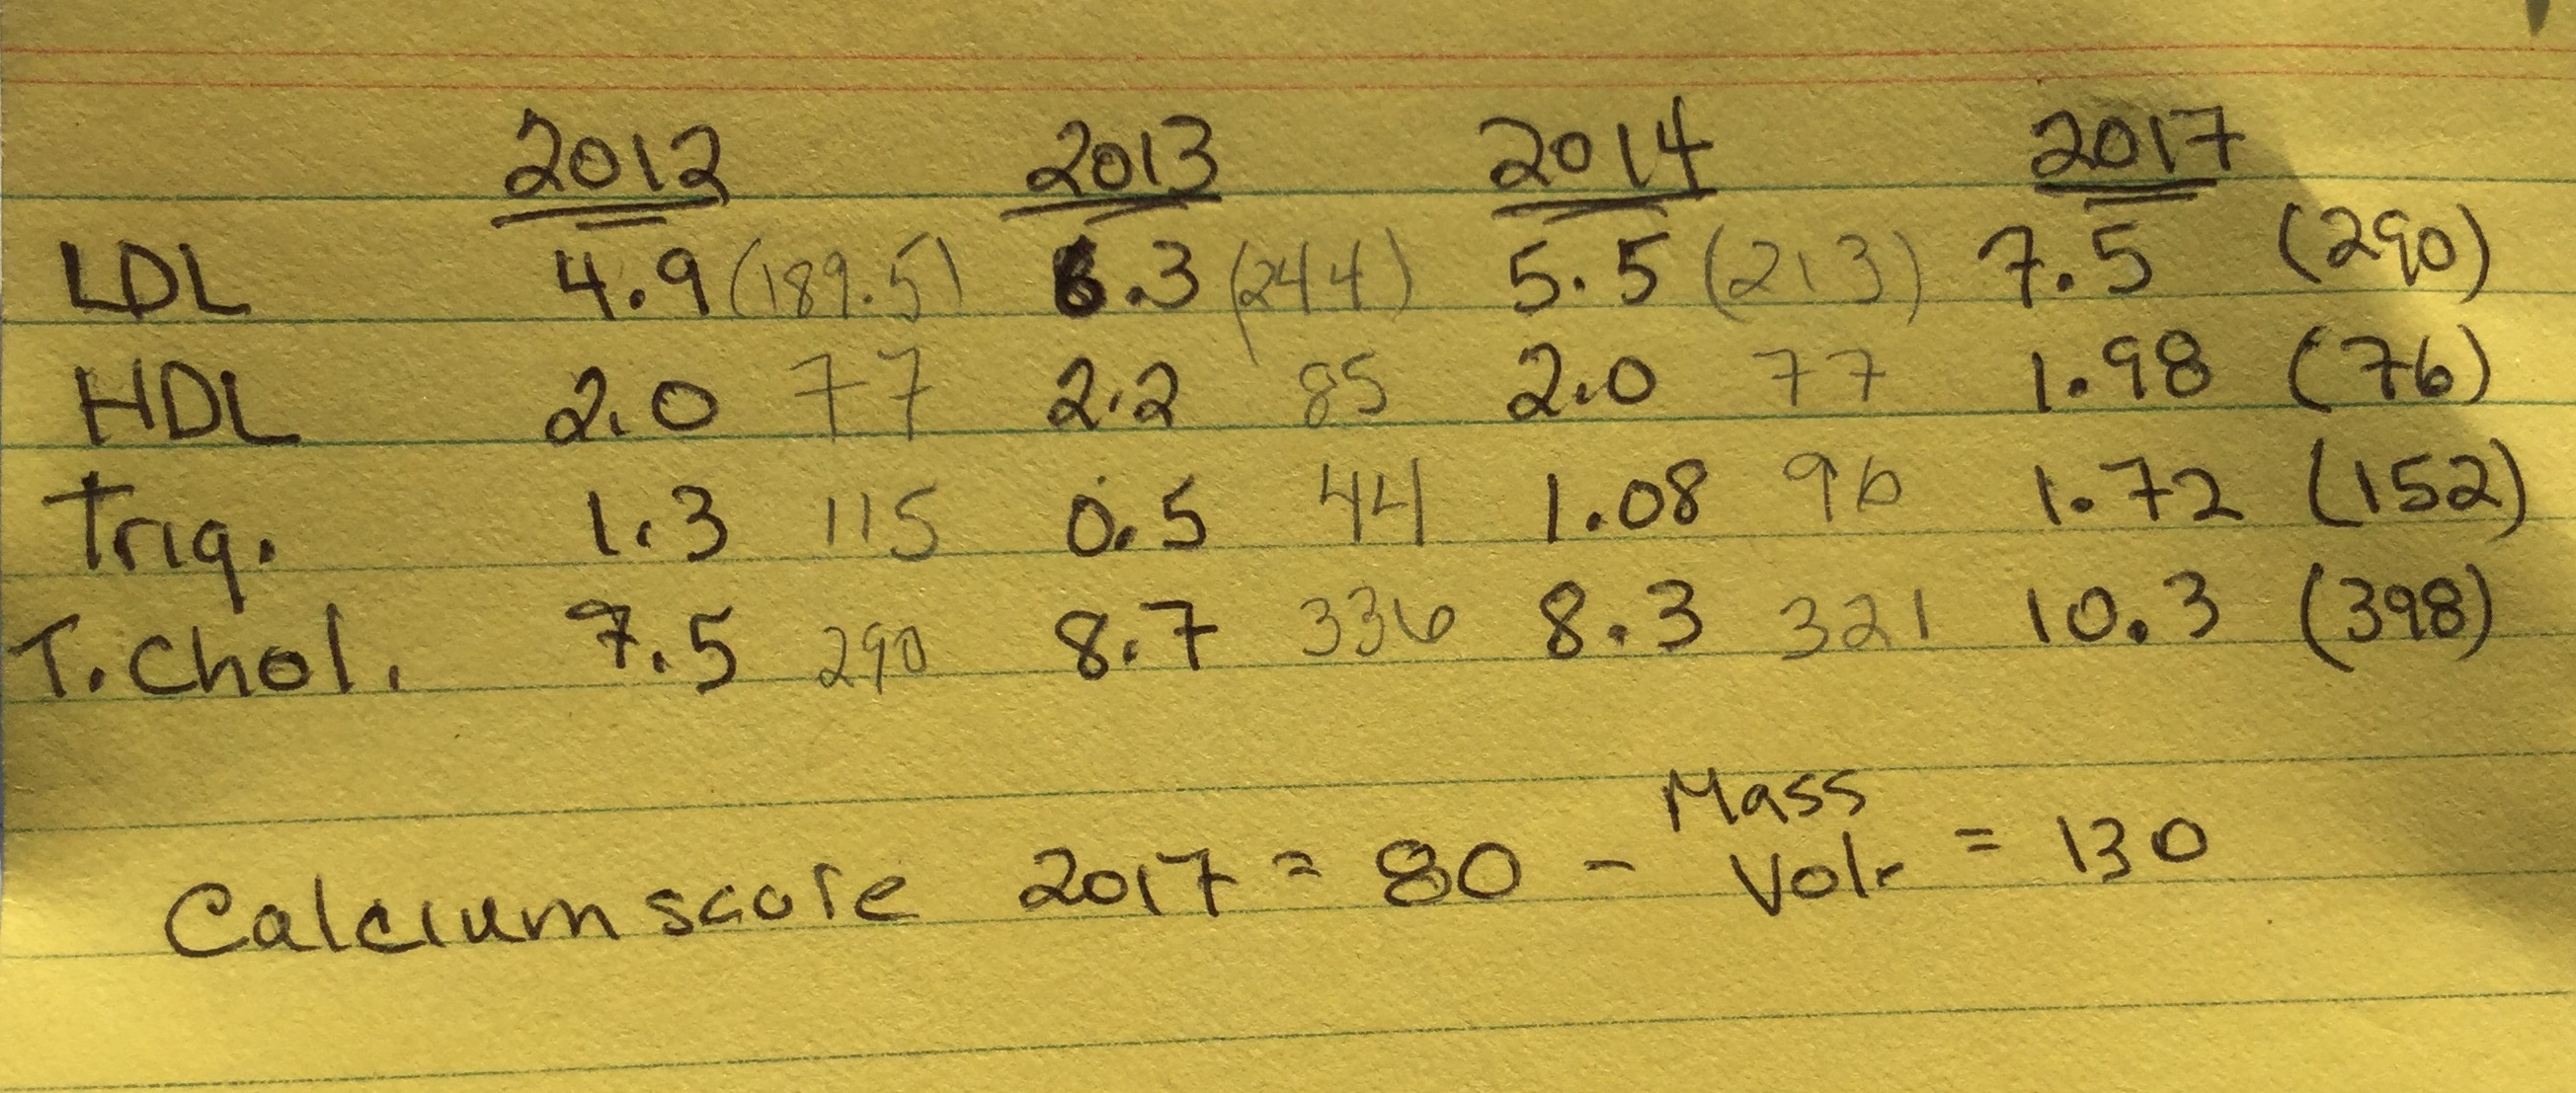 2012 2013 2014 2017
LDL 4.9 (189.5) 6.3 (244) 5.5 (213) 7.5 (290)
HDL 2.0 77 2.2 85 2.0 77 1.98 (76)
Trig. 1.3 115 0.5 44 1.08 96 1.72 (152)
T. Chol. 7.5 290 8.7 336 8.3 321 10.3 (398)
Mass
Calcium score 2017 = 80 - Vol. = 130